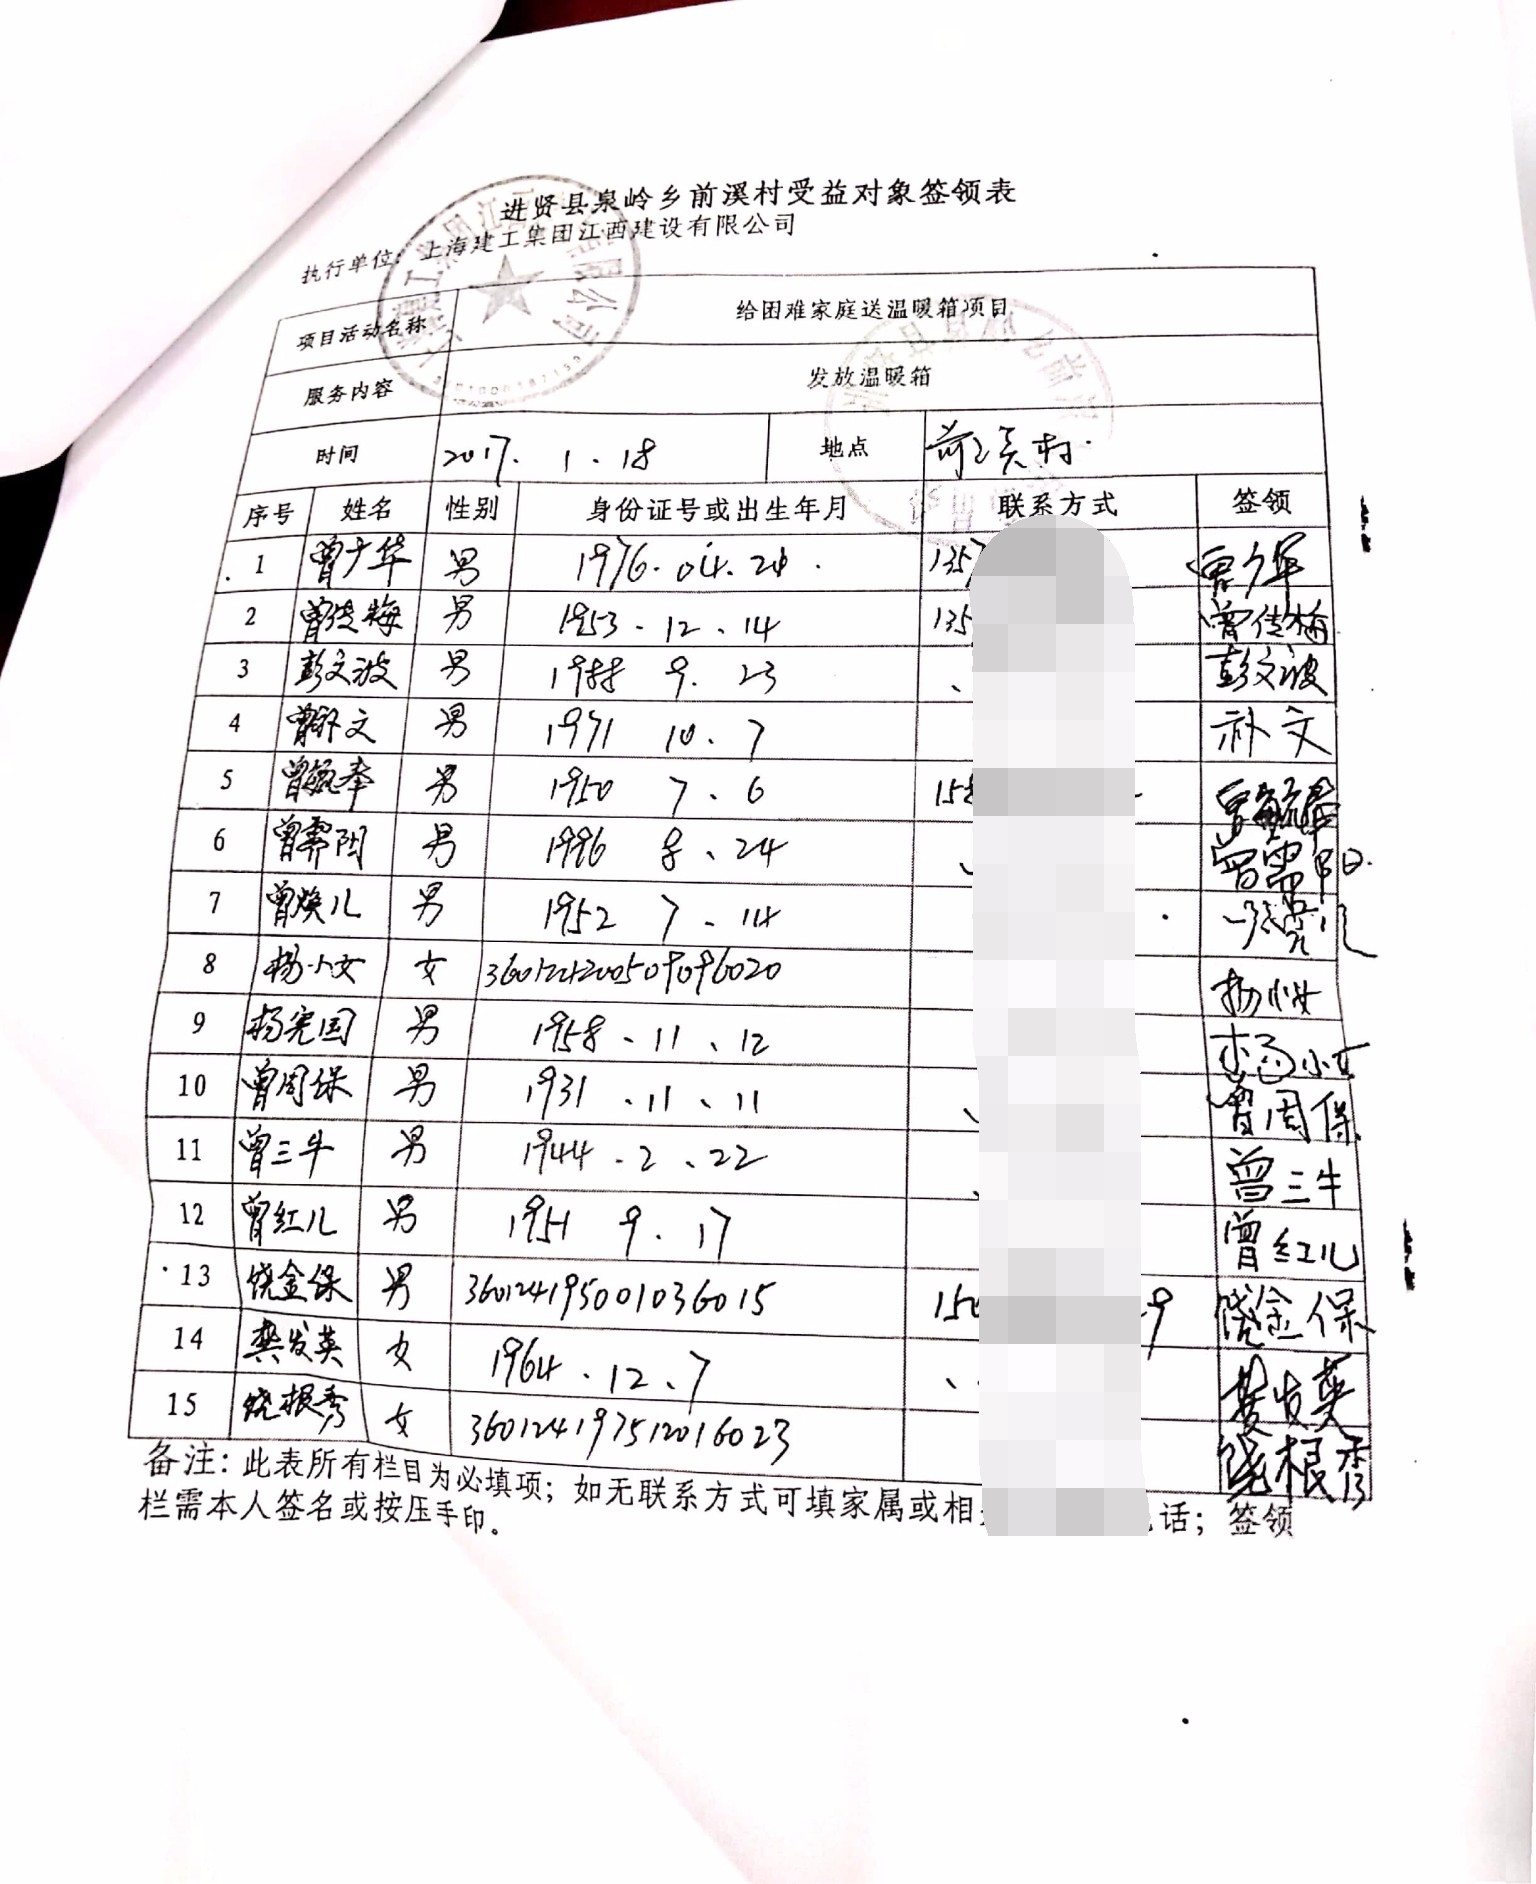 进贤县泉岭乡前溪村受益对象签领表
执行单位：上海建工集团江西建设有限公司
项目活动名称 给困难家庭送温暖箱项目
服务内容 发放温暖箱
时间 2017. 1. 18 地点 前溪村
序号 姓名 性别 身份证号或出生年月 联系方式 签领
1 曾少华 男 1976.04.24 135 曾少华
2 曾 梅 男 1953.12.14 135 曾 梅
3 彭文波 男 1988 9. 23 彭文波
4 曾补文 男 1971 10. 7 补文
5 曾毓奉 男 1950 7. 6 158 曾毓
6 曾霁阳 男 1996 8、24 曾霁阳
7 曾焕儿 男 1952 7. 14
8 杨小女 女 杨小女
9 杨宪国 男 1958、11、12 杨小女
10 曾周保 男 1931 .11、11 曾周保
11 曾三牛 男 1944.2、22 曾三牛
12 曾红儿 男 1951 9. 17 曾红儿
13 饶金保 男 360124195001036015 150 9 饶金保
14 龚发英 女 1964.12、7 龚发英
15 饶根秀 女 360124197512016023 饶根秀
备注：此表所有栏目为必填项；如无联系方式可填家属或相 话；签领
栏需本人签名或按压手印。